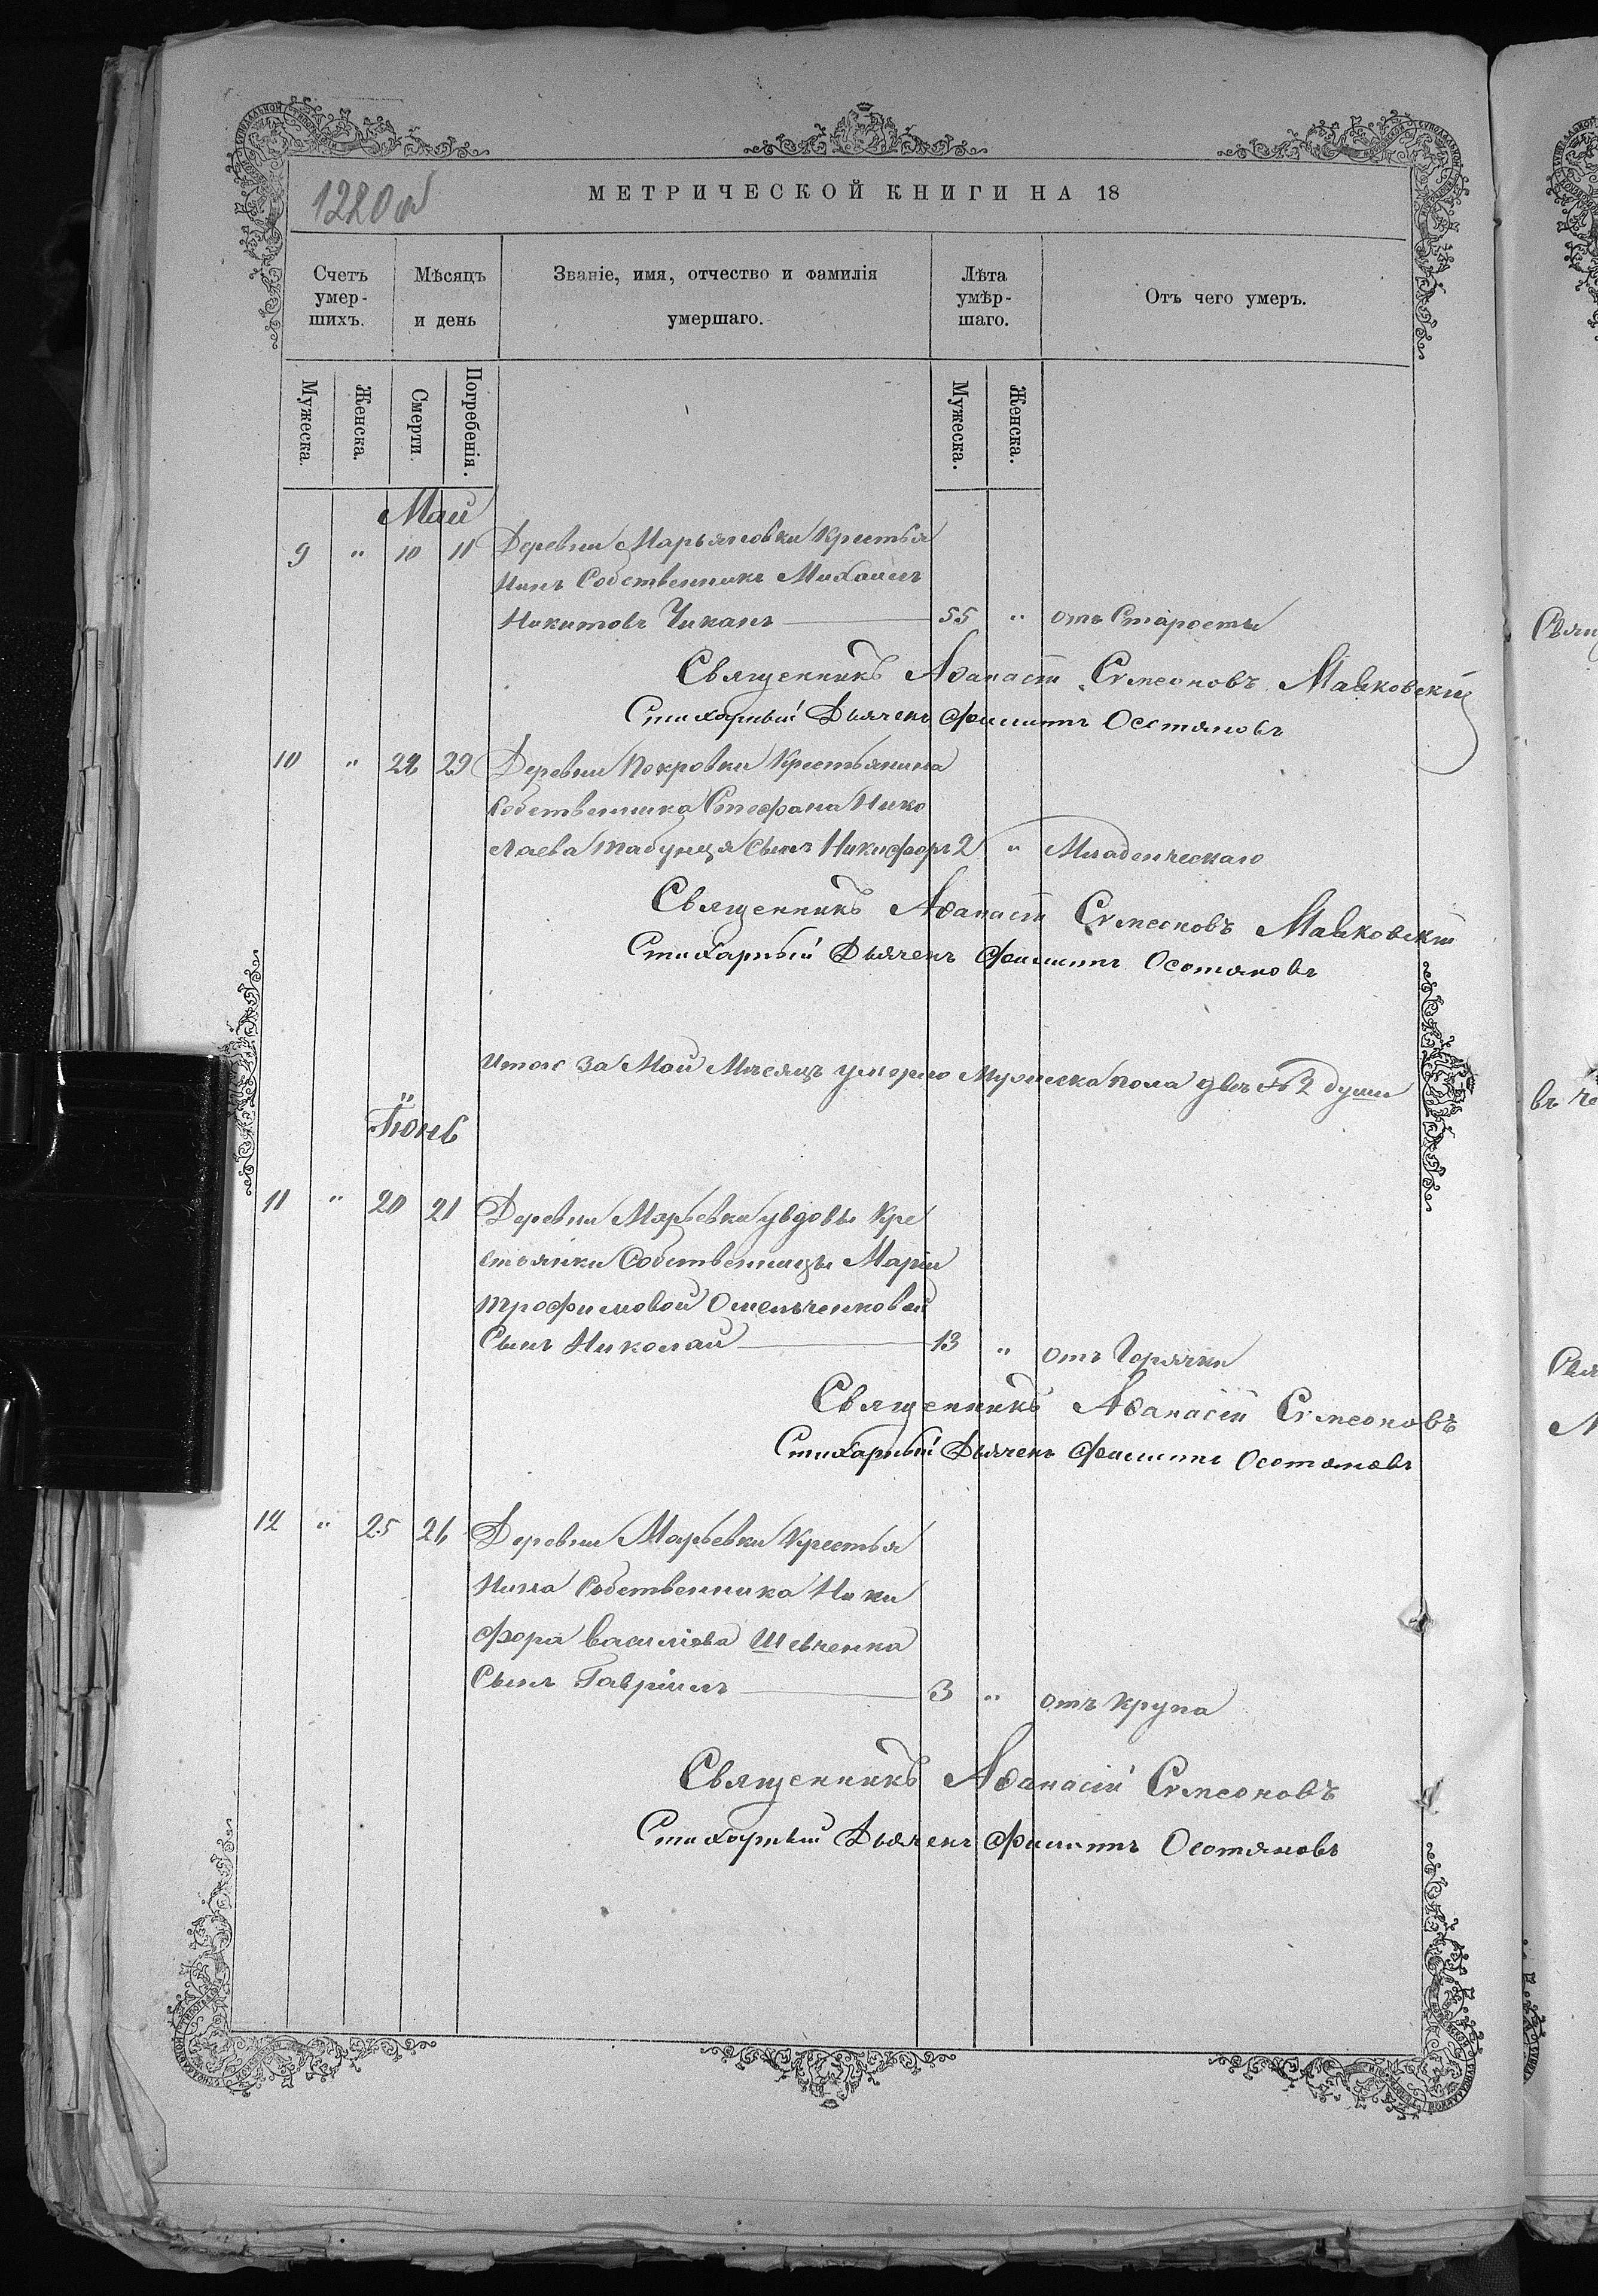 1220 об
МЕТРИЧЕСКОЙ КНИГИ НА 18
Счетъ умер-шихъ.
Мѣсяцъ и день
Званіе, имя, отчество и фамилія умершаго.
Лѣта умѣр-шаго.
Отъ чего умеръ.
Мужеска.
Женска.
Смерти.
Погребенія.
Мужеска.
Женска.
Май
9 " 10 11 Деревни Марьяновки Крестья
нинъ Собственникъ Михаилъ
Никитовъ Чиканъ 55 " отъ Старости
Священникъ Аѳанасій Симеоновъ Маяковскій
Стихарный Дьячекъ Филиппъ Осотяновъ
10 " 28 29 Деревни Покровки Крестьянина
Собственника Стефана Нико
лаева Табунця сынъ Никифоръ 2 " Младенческаго
Священникъ Аѳанасій Симеоновъ Маяковскій
Стихарный Дьячекъ Филиппъ Осотяновъ
Итого за Май Мѣсяцъ умерло Мужеска пола двѣ 2 души
Іюнь
11 " 20 21 Деревни Марьевки у вдовы Кре
стьянки Собственницы Маріи
Трофимовой Омельченковой
Сынъ Николай 13 " отъ Горячки
Священникъ Аѳанасій Симеоновъ
Стихарный Дьячекъ Филиппъ Осотяновъ
12 " 25 26 Деревни Марьевки Крестья
нина Собственника Ники
фора Василіева Шевченка
Сынъ Гавріилъ 3 " отъ Крупа
Священникъ Аѳанасій Симеоновъ
Стихарный Дьячекъ Филиппъ Осотяновъ